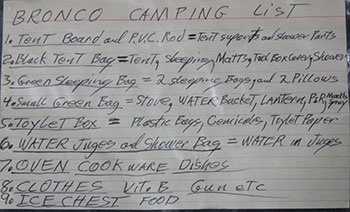 BRONCO CAMPING LIST
1. TENT Board and P.V.C. Rod = Tent supports and shower Parts
2. Black Tent Bag = Tent, sleeping Matts, Tool Box Cover, Shower
3. Green Sleeping Bag = 2 sleeping Bags, and 2 Pillows
4. Small Green Bag = Stove, WATER Bucket, LANTERN,
5. Toylet Box = Plastic Bags, Cemicals, Toylet Paper
6. WATER Juges and Shower Bag = WATER in Juges
7. OVEN COOKWARE Dishes
8. CLOTHES Vit. B Gun etc
9. ICE CHEST FOOD